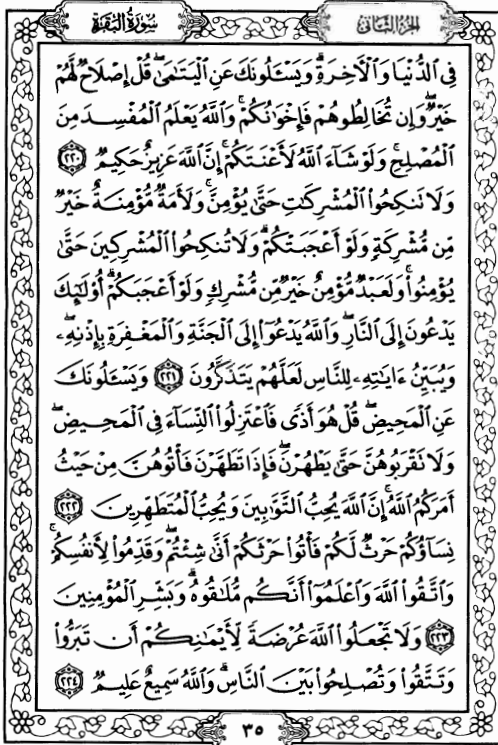 الجزء الثاني
سورة البقرة
فِى ٱلدُّنْيَا وَٱلْـَٔاخِرَةِ ۗ وَيَسْـَٔلُونَكَ عَنِ ٱلْيَتَـٰمَىٰ ۖ قُلْ إِصْلَاحٌ لَّهُمْ
خَيْرٌ ۖ وَإِن تُخَالِطُوهُمْ فَإِخْوَٰنُكُمْ ۚ وَٱللَّهُ يَعْلَمُ ٱلْمُفْسِدَ مِنَ
ٱلْمُصْلِحِ ۚ وَلَوْ شَآءَ ٱللَّهُ لَأَعْنَتَكُمْ ۚ إِنَّ ٱللَّهَ عَزِيزٌ حَكِيمٌ ٢٢٠
وَلَا تَنكِحُوا۟ ٱلْمُشْرِكَـٰتِ حَتَّىٰ يُؤْمِنَّ ۚ وَلَأَمَةٌ مُّؤْمِنَةٌ خَيْرٌ
مِّن مُّشْرِكَةٍ وَلَوْ أَعْجَبَتْكُمْ ۗ وَلَا تُنكِحُوا۟ ٱلْمُشْرِكِينَ حَتَّىٰ
يُؤْمِنُوا۟ ۚ وَلَعَبْدٌ مُّؤْمِنٌ خَيْرٌ مِّن مُّشْرِكٍ وَلَوْ أَعْجَبَكُمْ ۗ أُو۟لَـٰٓئِكَ
يَدْعُونَ إِلَى ٱلنَّارِ ۖ وَٱللَّهُ يَدْعُوٓا۟ إِلَى ٱلْجَنَّةِ وَٱلْمَغْفِرَةِ بِإِذْنِهِۦ ۖ
وَيُبَيِّنُ ءَايَـٰتِهِۦ لِلنَّاسِ لَعَلَّهُمْ يَتَذَكَّرُونَ ٢٢١ وَيَسْـَٔلُونَكَ
عَنِ ٱلْمَحِيضِ ۖ قُلْ هُوَ أَذًى فَٱعْتَزِلُوا۟ ٱلنِّسَآءَ فِى ٱلْمَحِيضِ ۖ
وَلَا تَقْرَبُوهُنَّ حَتَّىٰ يَطْهُرْنَ ۖ فَإِذَا تَطَهَّرْنَ فَأْتُوهُنَّ مِنْ حَيْثُ
أَمَرَكُمُ ٱللَّهُ ۚ إِنَّ ٱللَّهَ يُحِبُّ ٱلتَّوَّٰبِينَ وَيُحِبُّ ٱلْمُتَطَهِّرِينَ ٢٢٢
نِسَآؤُكُمْ حَرْثٌ لَّكُمْ فَأْتُوا۟ حَرْثَكُمْ أَنَّىٰ شِئْتُمْ ۖ وَقَدِّمُوا۟ لِأَنفُسِكُمْ ۚ
وَٱتَّقُوا۟ ٱللَّهَ وَٱعْلَمُوٓا۟ أَنَّكُم مُّلَـٰقُوهُ ۗ وَبَشِّرِ ٱلْمُؤْمِنِينَ
٢٢٣ وَلَا تَجْعَلُوا۟ ٱللَّهَ عُرْضَةً لِّأَيْمَـٰنِكُمْ أَن تَبَرُّوا۟
وَتَتَّقُوا۟ وَتُصْلِحُوا۟ بَيْنَ ٱلنَّاسِ ۗ وَٱللَّهُ سَمِيعٌ عَلِيمٌ ٢٢٤
٣٥